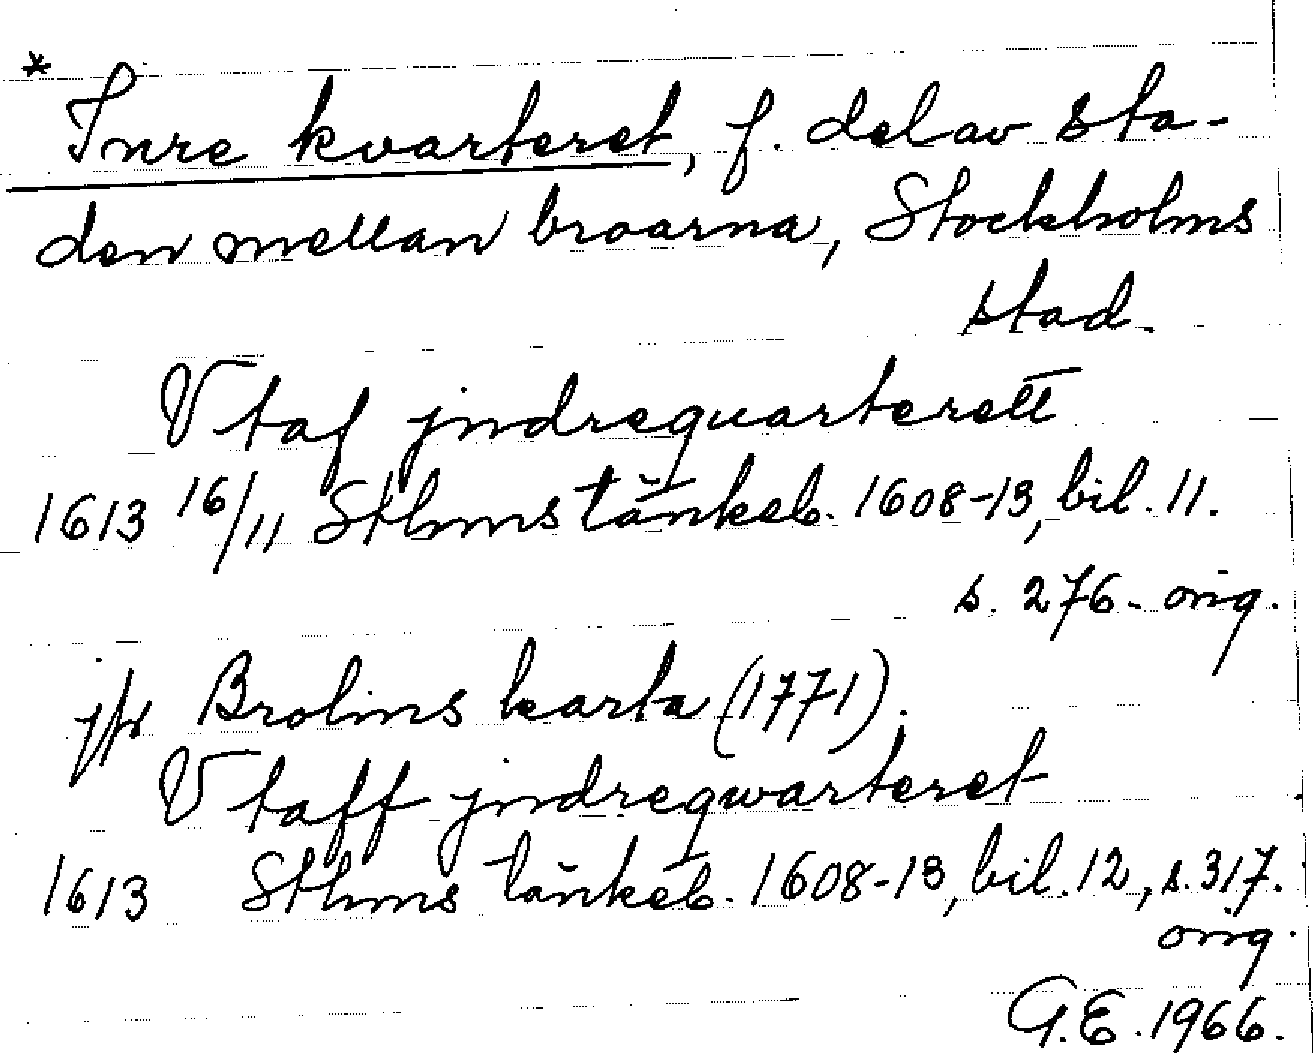 *
Inre kvarteret, f. del av sta-
den mellan broarna, Stockholms
stad.
Vtaf jndrequarterett
1613 16/11 Sthms tänkeb. 1608-13, bil. 11.
s. 276. orig.
jfr Brolins karta (1771).
Vtaff jndreqwarteret
1613 Sthms tänkeb. 1608-13, bil. 12, s. 317.
orig.
G.E. 1966.